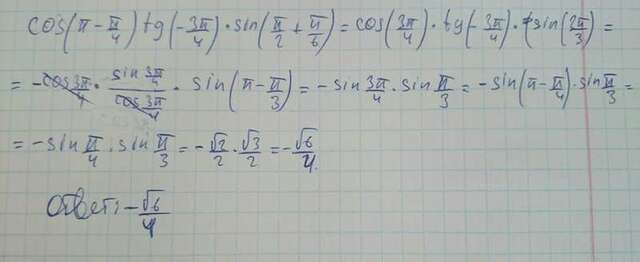 cos(π - π/4) tg(-3π/4) · sin(π/2 + π/6) = cos(3π/4) · tg(-3π/4) · sin(2π/3) =
= - cos 3π/4 · sin 3π/4 / cos 3π/4 · sin(π - π/3) = - sin 3π/4 · sin π/3 = - sin(π - π/4) · sin π/3 =
= - sin π/4 · sin π/3 = - √2/2 · √3/2 = - √6/4.
Ответ: - √6/4